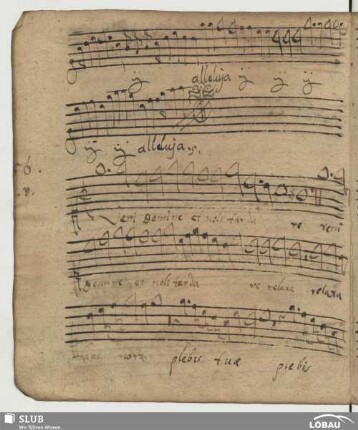 ij alleluja ij ij ij
ij ij alleluja
Veni Domine et noli tarda re veni
Domine et noli tarda re relaxa relaxa
plebis tuæ plebis
SLUB
Wir führen Wissen.
LÖBAU